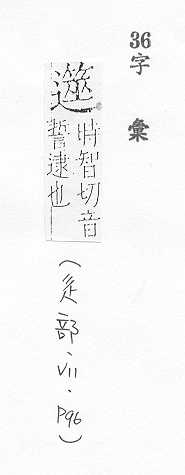 36字彙
遾
時智切音
誓逮也
(辵部·VII·P96)